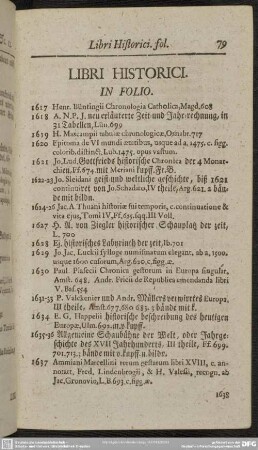 Libri Historici. fol. 79
LIBRI HISTORICI.
IN FOLIO.
1617 Henr. Büntingii Chronologia Catholica, Magd. 608
1618 A. N. P. J. neu erläuterte Zeit und Jahr-rechnung, in
31 Tabellen, Lün. 699
1619 H. Mascampii tabulæ chronologicæ, Osterbr. 717
1620 Epitoma de VI mundi ætatibus, usque ad a. 1475. c. figg.
coloribus distinct. Lub. 1475. opus vastum.
1621 Jo. Lud. Gottfrieds historische Chronica der 4 Monar-
chien, Ff. 674. mit Meriani kupff. Fr. B.
1622-23 Jo. Sleidani geist- und weltliche geschichte, biß 1621
continuiret von Jo. Schadæo, IV theile, Arg. 621. 2 bän-
de mit bildn.
1624-26 Jac. A. Thuani historiæ sui temporis, c. continuatione &
vita ejus, Tomi IV, Ff. 625. sqq. III Voll.
1627 H. A. von Ziegler historischer Schauplatz der zeit,
L. 700
1628 Ej. historisches Labyrinth der zeit, ib. 701
1629 Jo. Jac. Luckii sylloge numismatum elegant. ab a. 1500.
usque 1600 cusorum, Arg. 620. c. figg. æ.
1630 Paul Piasecii Chronica gestorum in Europa singular.
Amst. 648. Andr. Fricii de Republica emendanda libri
V. Bas. 554
1631-33 P. Valckenier und Andr. Müllers verwirrtes Europa,
III theile. Amst. 677. 680. 683. 3 bände mit k.
1634 E. G. Happelii historische beschreibung des heutigen
Europæ, Ulm. 692. m. v. kupff.
1635-36 Allgemeine Schaubühne der Welt, oder Jahrge-
schichte des XVII Jahrhunderts. III theile, Ff. 699.
701. 713. 2 bände mit v. kupff. u. bildn.
1637 Ammiani Marcellini rerum gestarum libri XVIII, c. an-
notatt. Fred. Lindenbrogii, & H. Valesii, recogn. ab
Jac. Gronovio, L. B. 693. c. figg. æ.
1638